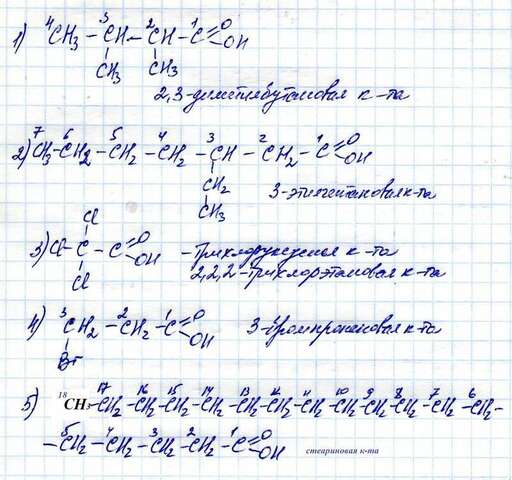 1) ⁴CH₃ – ³CH – ²CH – ¹C=O OH
CH₃ CH₃
2,3-диметилбутановая к-та
2) ⁷CH₃–⁶CH₂–⁵CH₂–⁴CH₂–³CH–²CH₂–¹C=O OH
CH₂
CH₃
3-этилгептановая к-та
Cl
3) Cl–C–C=O OH – трихлоруксусная к-та
Cl
2,2,2-трихлорэтановая к-та
4) ³CH₂–²CH₂–¹C=O OH 3-бромпропановая к-та
Br
5) ¹⁸CH₃–¹⁷CH₂–¹⁶CH₂–¹⁵CH₂–¹⁴CH₂–¹³CH₂–¹²CH₂–¹¹CH₂–¹⁰CH₂–⁹CH₂–⁸CH₂–⁷CH₂–⁶CH₂–
–⁵CH₂–⁴CH₂–³CH₂–²CH₂–¹C=O OH стеариновая к-та